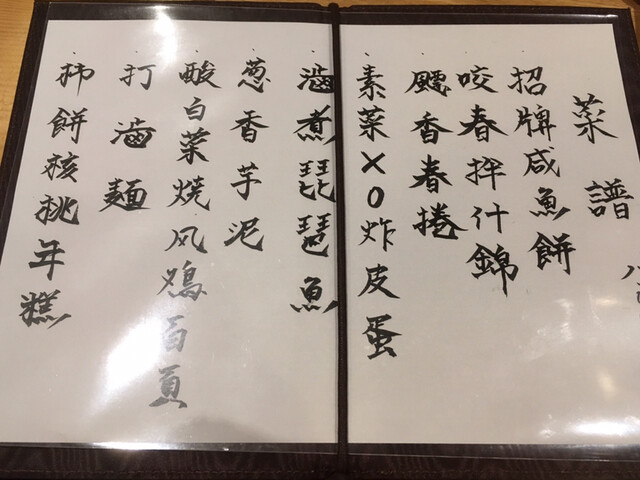 菜譜
招牌咸魚餅
咬春拌什錦
飃香春捲
素菜XO炸皮蛋
滷煮琵琶魚
葱香芋泥
酸白菜燒风鴻百頁
打滷麵
柿餅核挑年糕